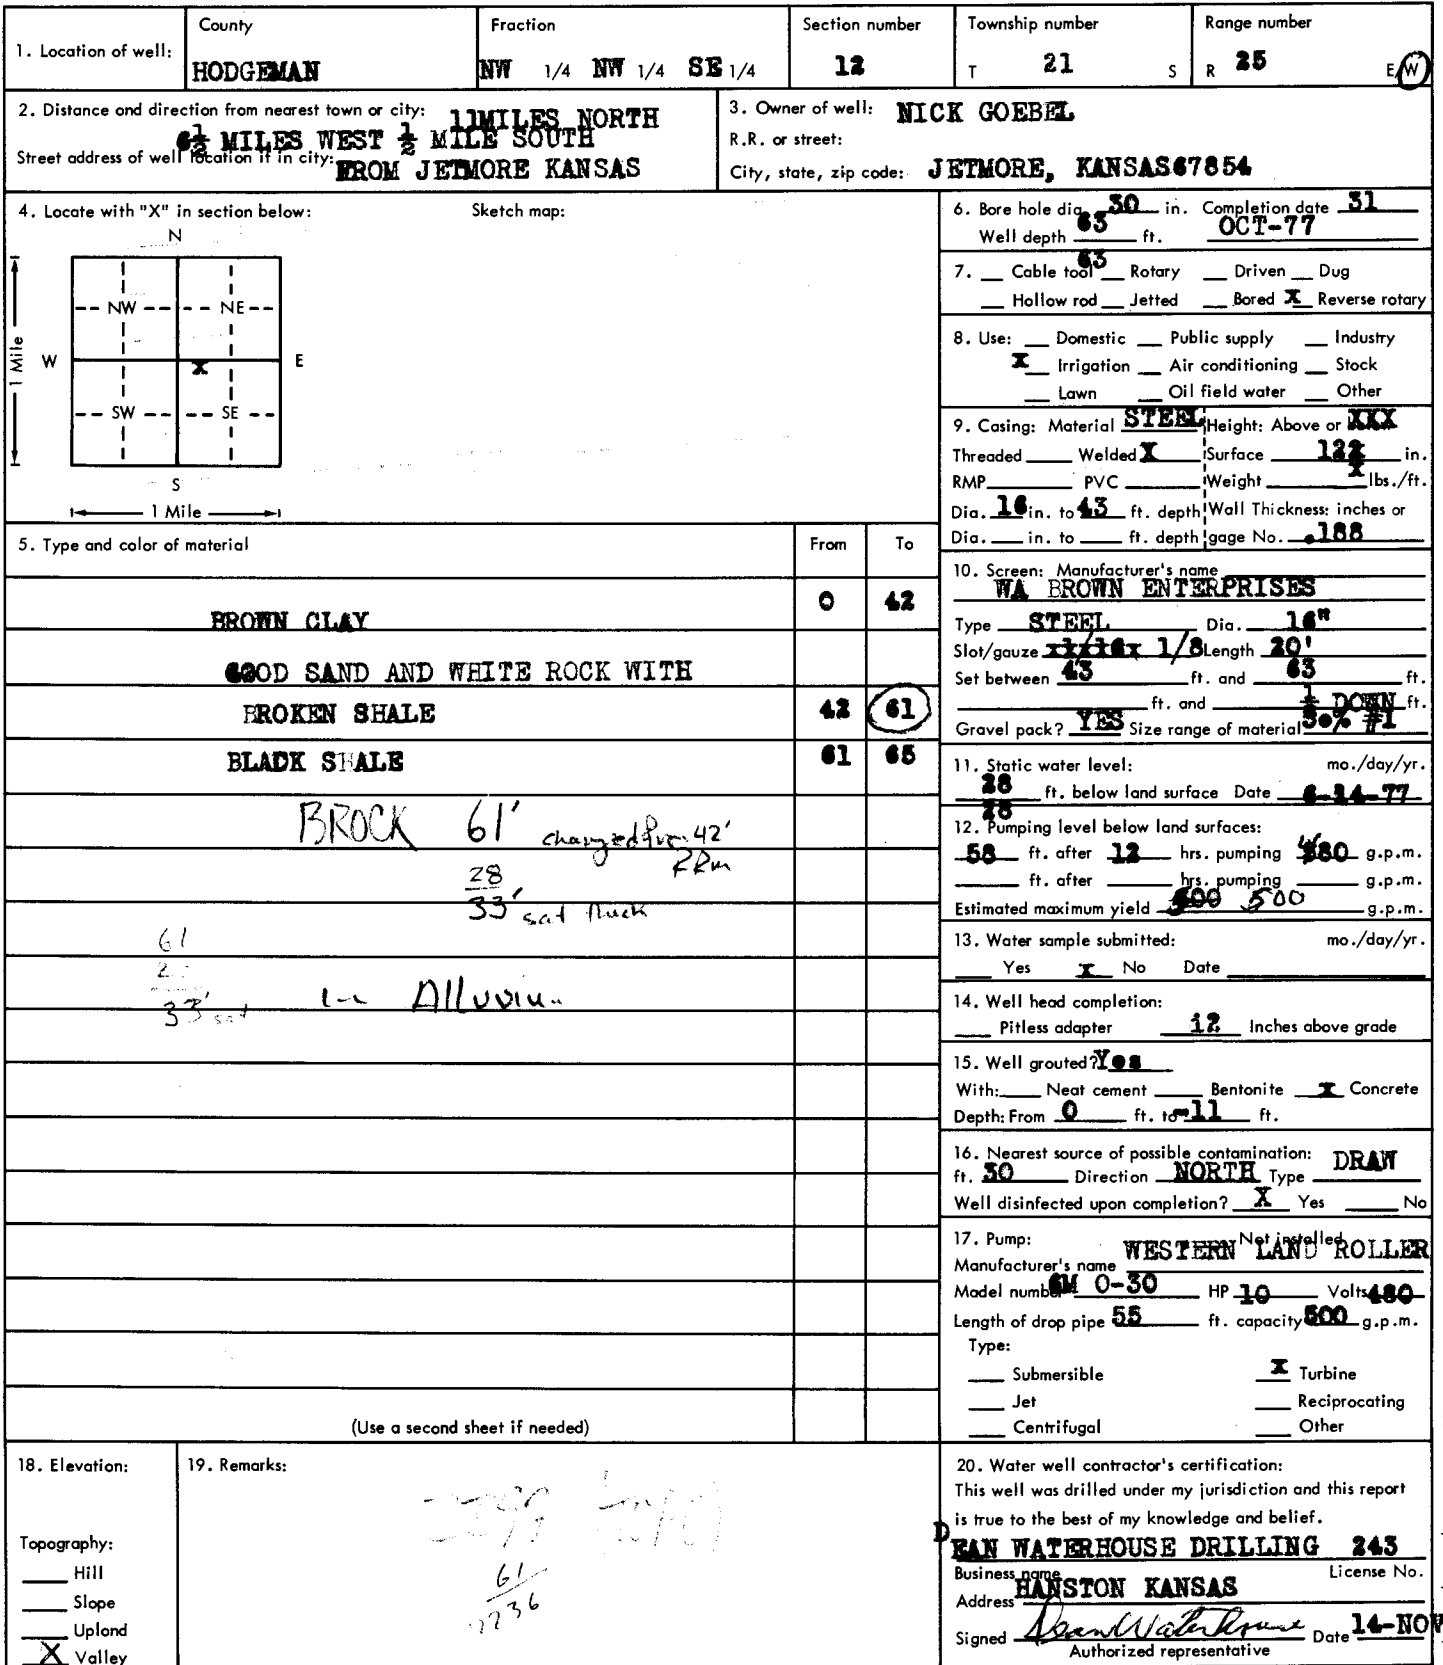 County Fraction Section number Township number Range number
1. Location of well: HODGEMAN NW 1/4 NW 1/4 SE 1/4 12 T 21 S R 25 E/W
2. Distance and direction from nearest town or city: 11MILES NORTH
6½ MILES WEST ½ MILE SOUTH
Street address of well location if in city: FROM JETMORE KANSAS
3. Owner of well: NICK GOEBEL
R.R. or street:
City, state, zip code: JETMORE, KANSAS67854
4. Locate with "X" in section below: Sketch map:
N
NW NE
W X E
SW SE
S
1 Mile
1 Mile
5. Type and color of material From To
BROWN CLAY 0 42
GOOD SAND AND WHITE ROCK WITH
BROKEN SHALE 42 61
BLADK SHALE 61 65
BROCK 61' changed from 42'
RRM
28
33' sat thick
61
33' sat
In Alluvium
(Use a second sheet if needed)
6. Bore hole dia. 30 in. Completion date 31
Well depth 63 ft. OCT-77
63
7. Cable tool Rotary Driven Dug
Hollow rod Jetted Bored X Reverse rotary
8. Use: Domestic Public supply Industry
X Irrigation Air conditioning Stock
Lawn Oil field water Other
9. Casing: Material STEEL Height: Above or XXX
Threaded Welded X Surface 12 in.
RMP PVC Weight lbs./ft.
Dia. 16 in. to 43 ft. depth Wall Thickness: inches or
Dia. in. to ft. depth gage No. .188
10. Screen: Manufacturer's name
WA BROWN ENTERPRISES
Type STEEL Dia. 16"
Slot/gauze 1/8 Length 20'
Set between 43 ft. and 63 ft.
ft. and ft.
DOWN
Gravel pack? YES Size range of material 30% #1
11. Static water level: mo./day/yr.
28 ft. below land surface Date 6-14-77
28
12. Pumping level below land surfaces:
58 ft. after 12 hrs. pumping g.p.m.
ft. after hrs. pumping g.p.m.
Estimated maximum yield 500 g.p.m.
13. Water sample submitted: mo./day/yr.
Yes X No Date
14. Well head completion:
Pitless adapter 12 Inches above grade
15. Well grouted? Yes
With: Neat cement Bentonite X Concrete
Depth: From 0 ft. to -11 ft.
16. Nearest source of possible contamination:
ft. 50 Direction NORTH Type DRAW
Well disinfected upon completion? X Yes No
17. Pump: Not installed
Manufacturer's name WESTERN LAND ROLLER
Model number 6M 0-30 HP 10 Volts 480
Length of drop pipe 55 ft. capacity 500 g.p.m.
Type:
Submersible X Turbine
Jet Reciprocating
Centrifugal Other
18. Elevation:
Topography:
Hill
Slope
Upland
X Valley
19. Remarks:
61
2236
20. Water well contractor's certification:
This well was drilled under my jurisdiction and this report
is true to the best of my knowledge and belief.
DEAN WATERHOUSE DRILLING 243
Business name License No.
Address HANSTON KANSAS
Signed Dean Waterhouse Date 14-NOV
Authorized representative